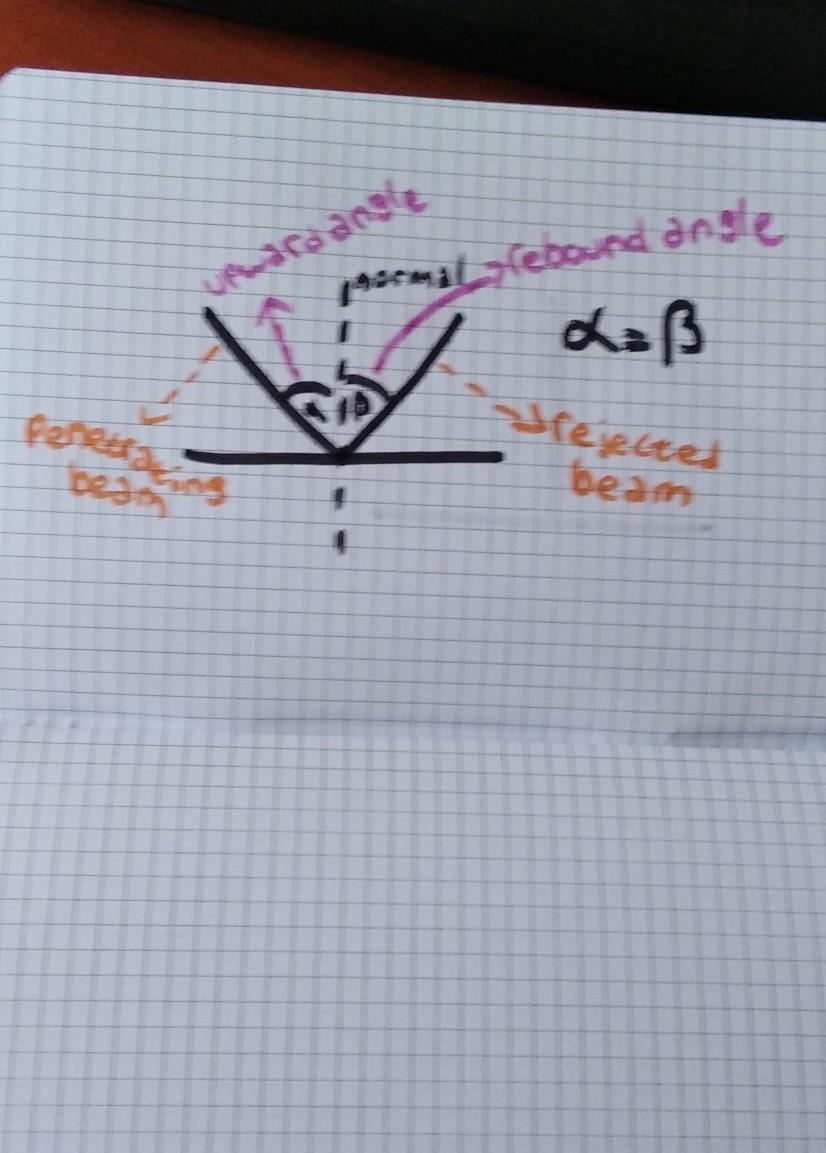 upward angle
normal
rebound angle
α = β
α
β
Penetrating
beam
rejected
beam